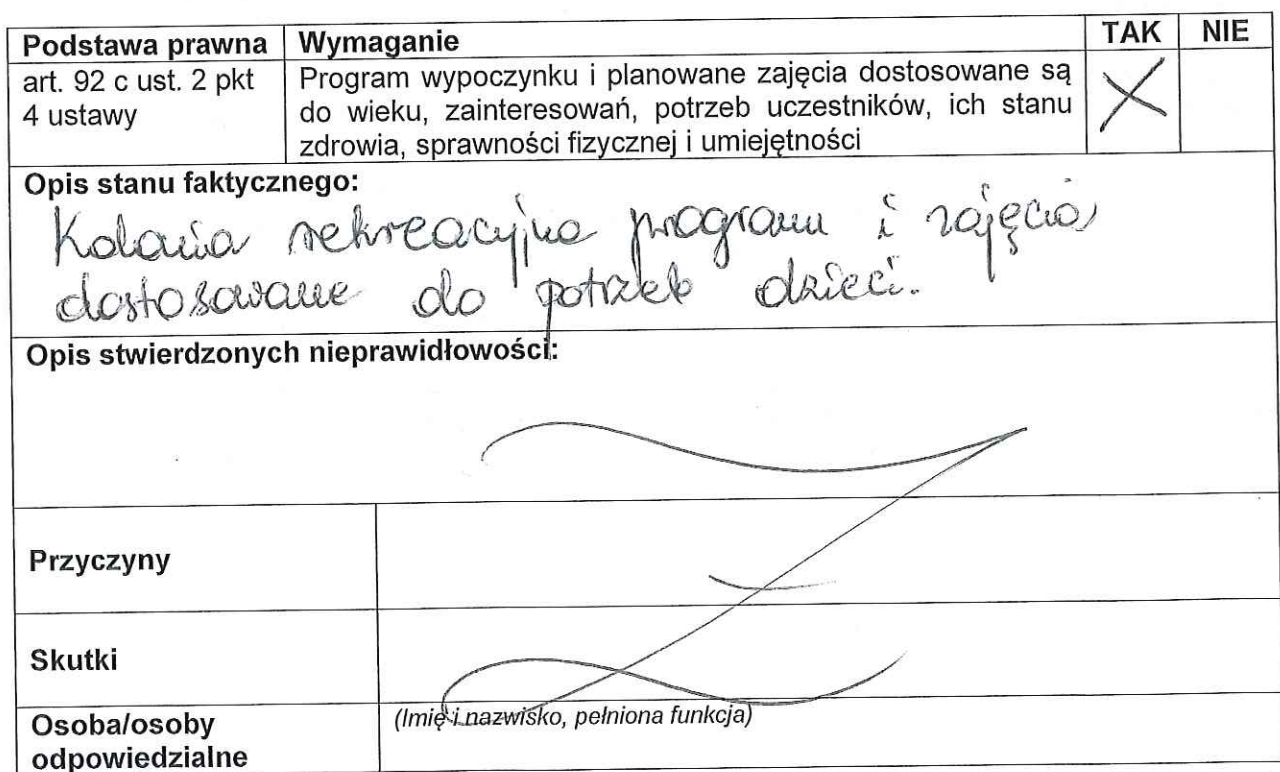 Podstawa prawna Wymaganie TAK NIE
art. 92 c ust. 2 pkt Program wypoczynku i planowane zajęcia dostosowane są
4 ustawy do wieku, zainteresowań, potrzeb uczestników, ich stanu
zdrowia, sprawności fizycznej i umiejętności X
Opis stanu faktycznego:
Kolonia rekreacyjna program i zajęcia
dostosowane do potrzeb dzieci.
Opis stwierdzonych nieprawidłowości:
Przyczyny
Skutki
Osoba/osoby (Imię i nazwisko, pełniona funkcja)
odpowiedzialne